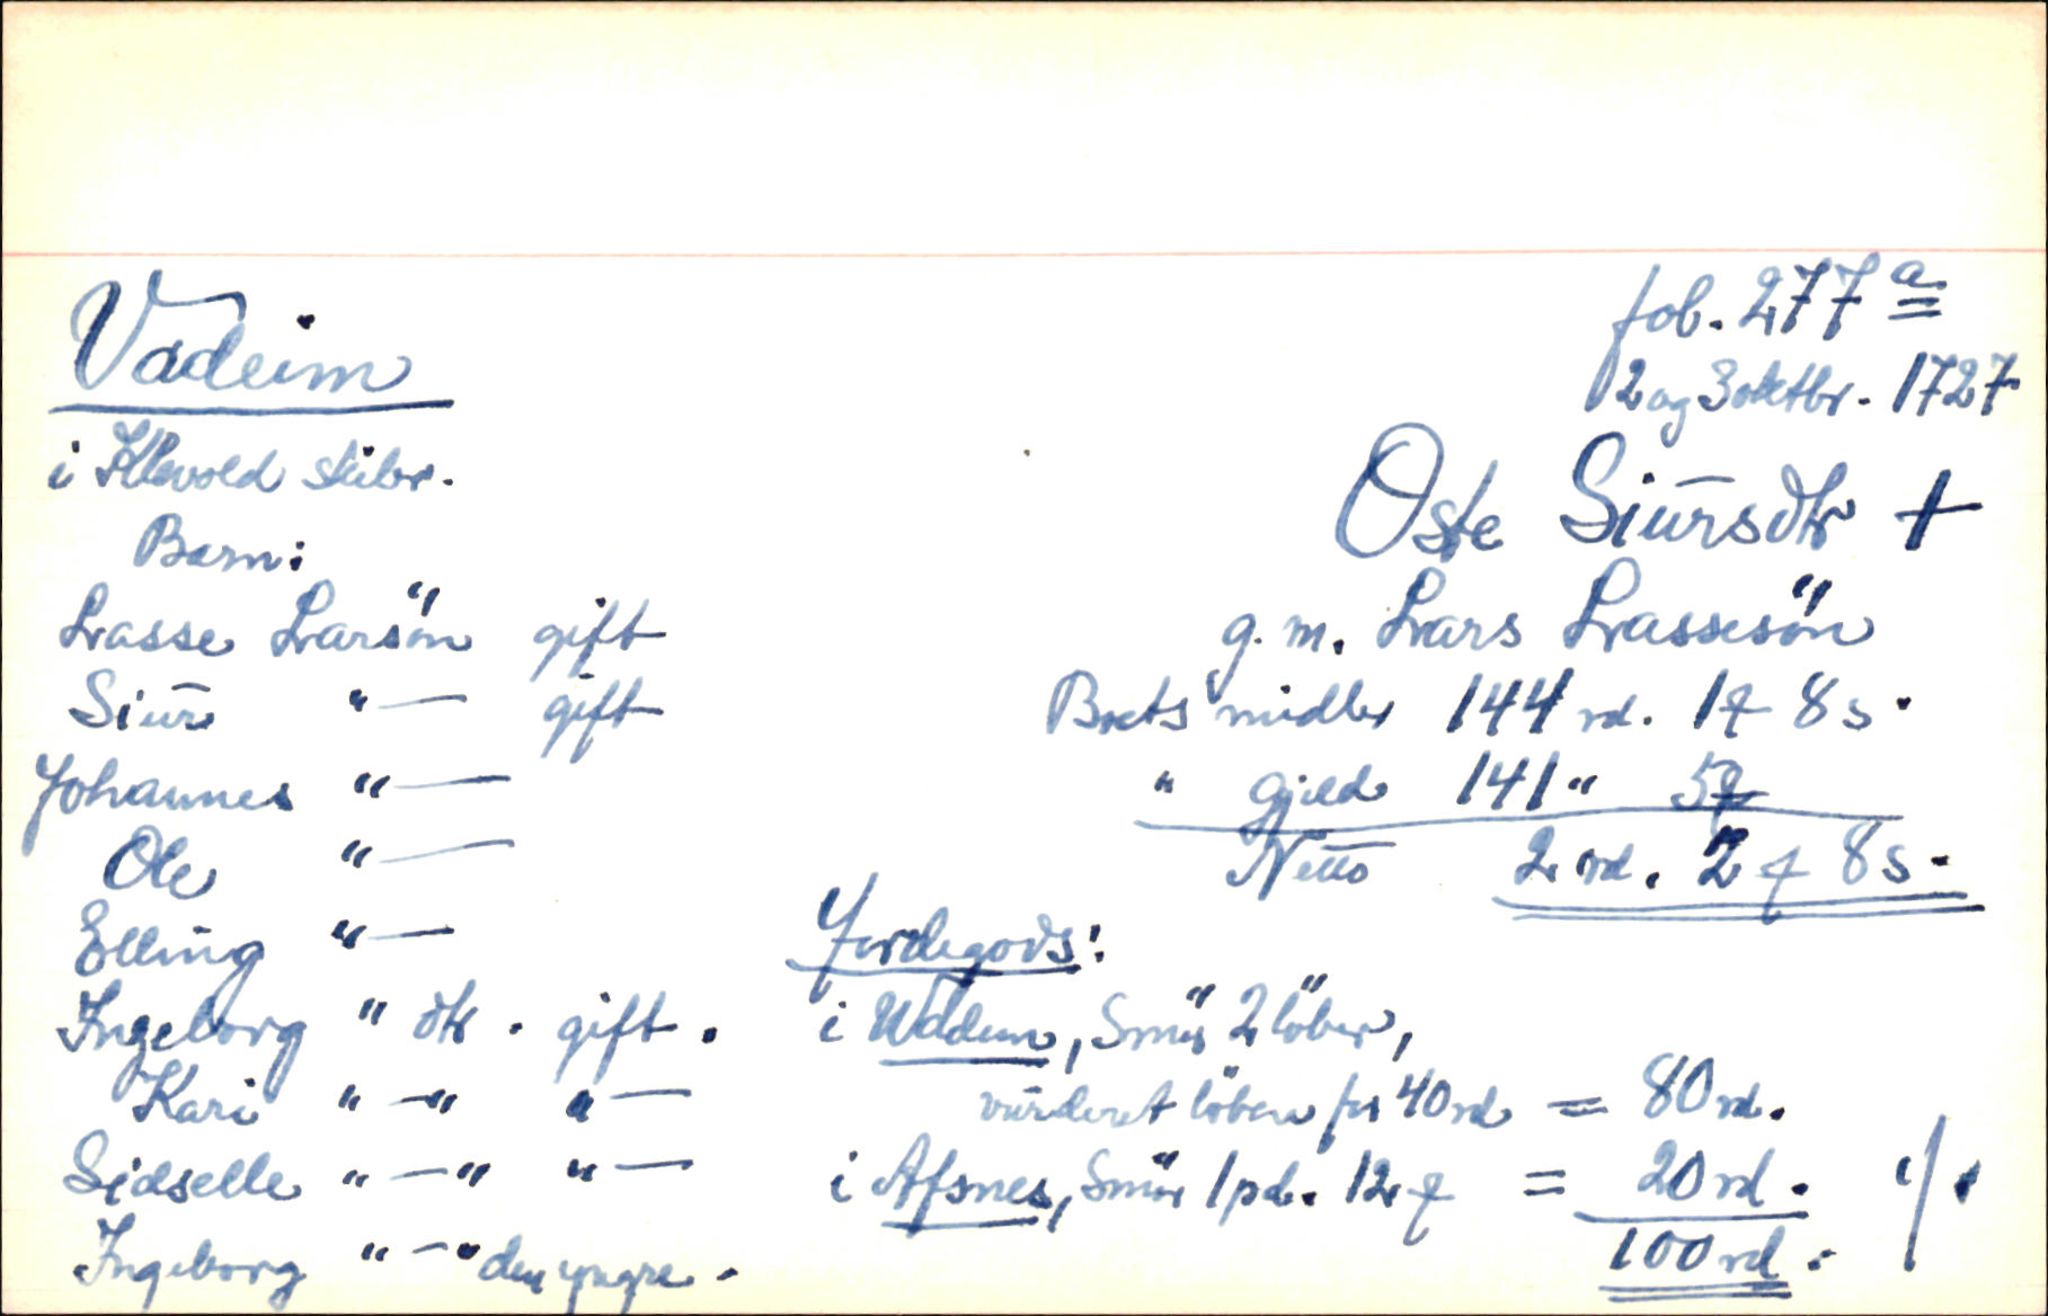 Vadeim
i Klævold skibr.
Barn:
Lasse Larsön gift
Siur "— gift
Johannes "—
Ole "—
Elling "—
Ingeborg " dtr. gift.
Kari " —" "—
Sidselle " —" "—
Ingeborg " —" den yngre.
fol. 277 a
2 og 3 oktbr. 1727
Oste Siursdtr +
g. m. Lars Lassesön
Boets midler 144 rd. 1 8 s.
" gjeld 141 " 5
Netto 2 rd. 2 8 s.
Jordegods:
i Wadeim, Smör 2 löber,
vurderet löben for 40 rd = 80 rd.
i Afsnes, Smör 1 pd. 12 = 20 rd.
100 rd.